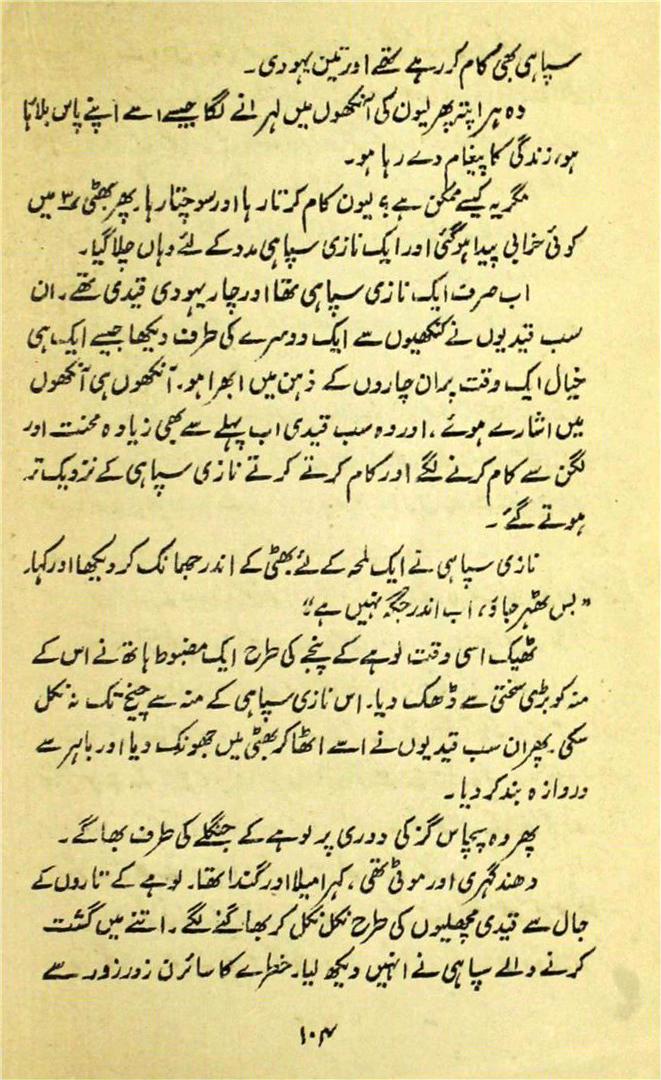 سپاہی بھی کام کر رہے تھے اور تین یہودی۔
وہ ہرا پتہ پھر لیون کی آنکھوں میں لہرانے لگا جیسے اسے اپنے پاس بلاتا
ہو، زندگی کا پیغام دے رہا ہو۔
مگر یہ کیسے ممکن ہے؟ لیون کام کرتا رہا اور سوچتا رہا۔ پھر بھٹی ۳ میں
کوئی خرابی پیدا ہوگئی اور ایک نازی سپاہی مدد کے لئے وہاں چلا گیا۔
اب صرف ایک نازی سپاہی تھا اور چار یہودی قیدی تھے۔ ان
سب قیدیوں نے کنکھیوں سے ایک دوسرے کی طرف دیکھا جیسے ایک ہی
خیال ایک وقت پر ان چاروں کے ذہن میں ابھرا ہو۔ آنکھوں ہی آنکھوں
میں اشارے ہوئے، اور وہ سب قیدی اب پہلے سے بھی زیادہ محنت اور
لگن سے کام کرنے لگے اور کام کرتے کرتے نازی سپاہی کے نزدیک تر
ہوتے گئے۔
نازی سپاہی نے ایک لمحہ کے لئے بھٹی کے اندر جھانک کر دیکھا اور کہا۔
"بس ٹھہر جاؤ، اب اندر جگہ نہیں ہے"
ٹھیک اسی وقت لوہے کے پنجے کی طرح ایک مضبوط ہاتھ نے اس کے
منہ کو بڑی سختی سے ڈھک دیا۔ اس نازی سپاہی کے منہ سے چیخ تک نہ نکل
سکی۔ پھر ان سب قیدیوں نے اسے اٹھا کر بھٹی میں جھونک دیا اور باہر سے
دروازہ بند کر دیا۔
پھر وہ پچاس گز کی دوری پر لوہے کے جنگلے کی طرف بھاگے۔
دھند گہری اور موٹی تھی، کہرا میلا اور گندا تھا۔ لوہے کے تاروں کے
جال سے قیدی مچھلیوں کی طرح نکل نکل کر بھاگنے لگے۔ اتنے میں گشت
کرنے والے سپاہی نے انہیں دیکھ لیا۔ خطرے کا سائرن زور زور سے
۱۰۴